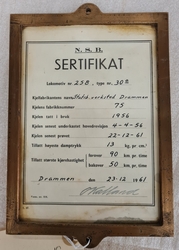 N. S. B.
SERTIFIKAT
Lokomotiv nr. 25B, type nr. 30a
Kjelfabrikantens navn Thune mek. verksted Drammen
Kjelens fabrikknummer 75
Kjelen tatt i bruk 1956
Kjelen senest underkastet hovedrevisjon 4-4-56
Kjelen senest prøvet 22-12-61
Tillatt høyeste damptrykk 13 kg. pr. cm.²
Tillatt største kjørehastighet forover 90 km. pr. time
bakover 50 km. pr. time
Drammen, den 23-12 1961